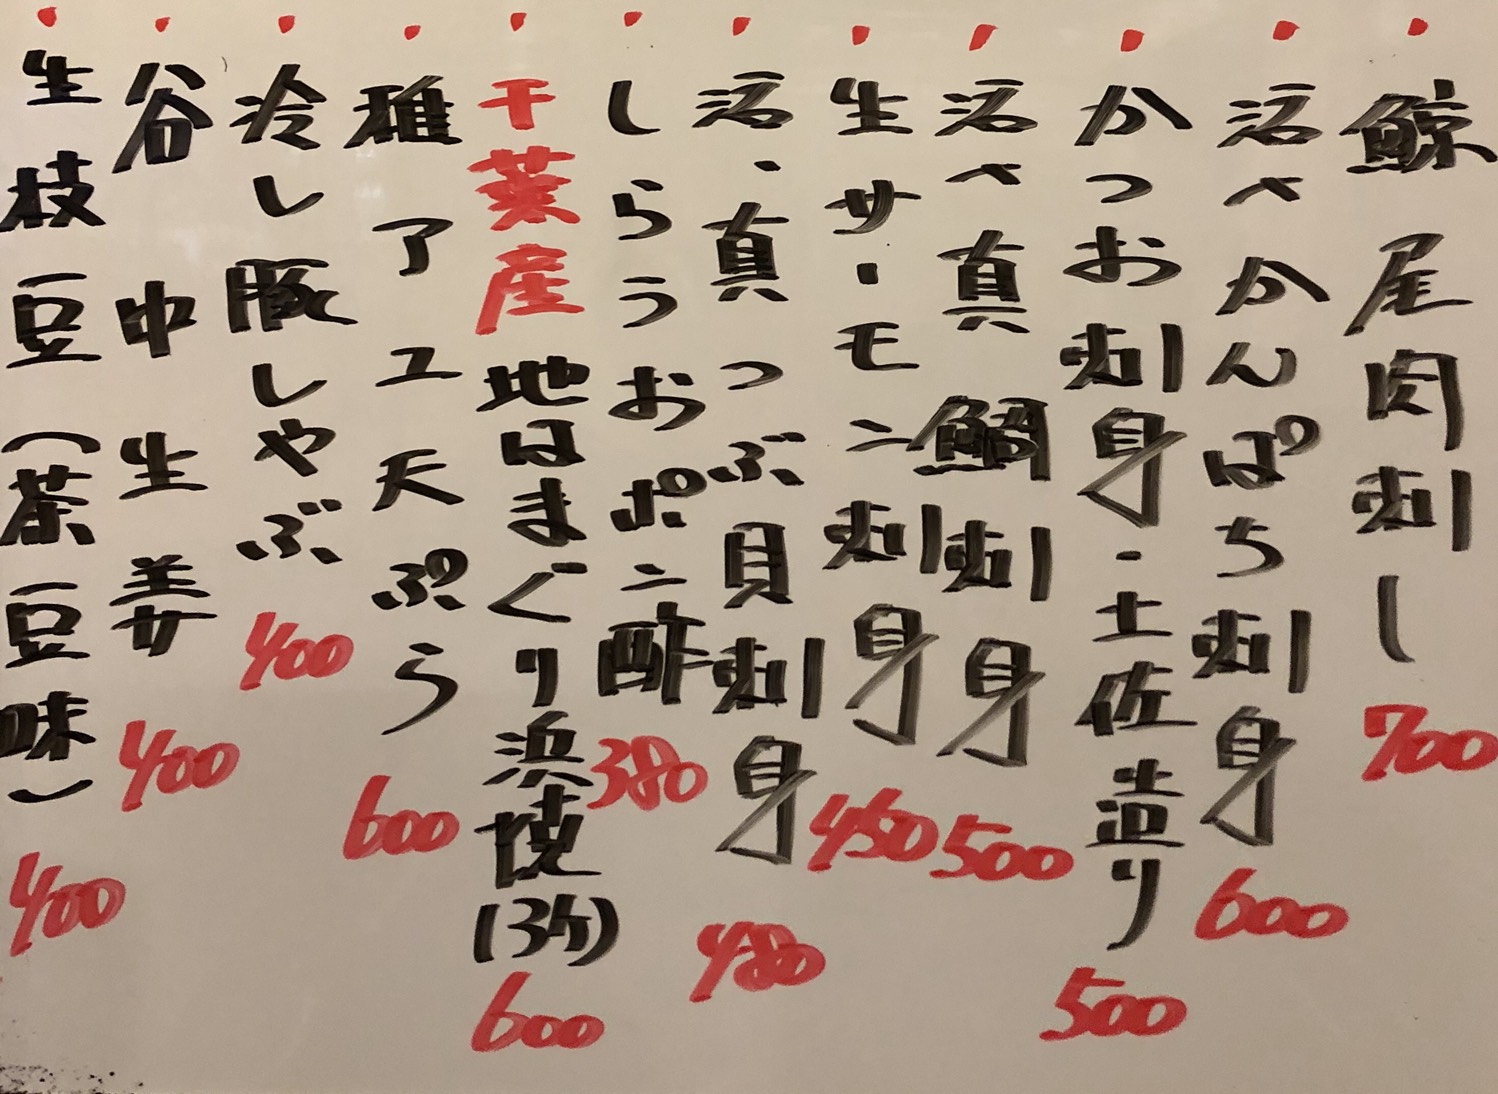 鯨尾肉刺し 700
活〆かんぱち刺身 600
かつお刺身・土佐造り 500
活〆真鯛刺身 500
生サーモン刺身 450
活、真つぶ貝刺身 480
しらうおポン酢 380
千葉産地はまぐり浜焼(3ケ) 600
稚アユ天ぷら 600
冷し豚しゃぶ 400
谷中生姜 400
生枝豆(茶豆味) 400